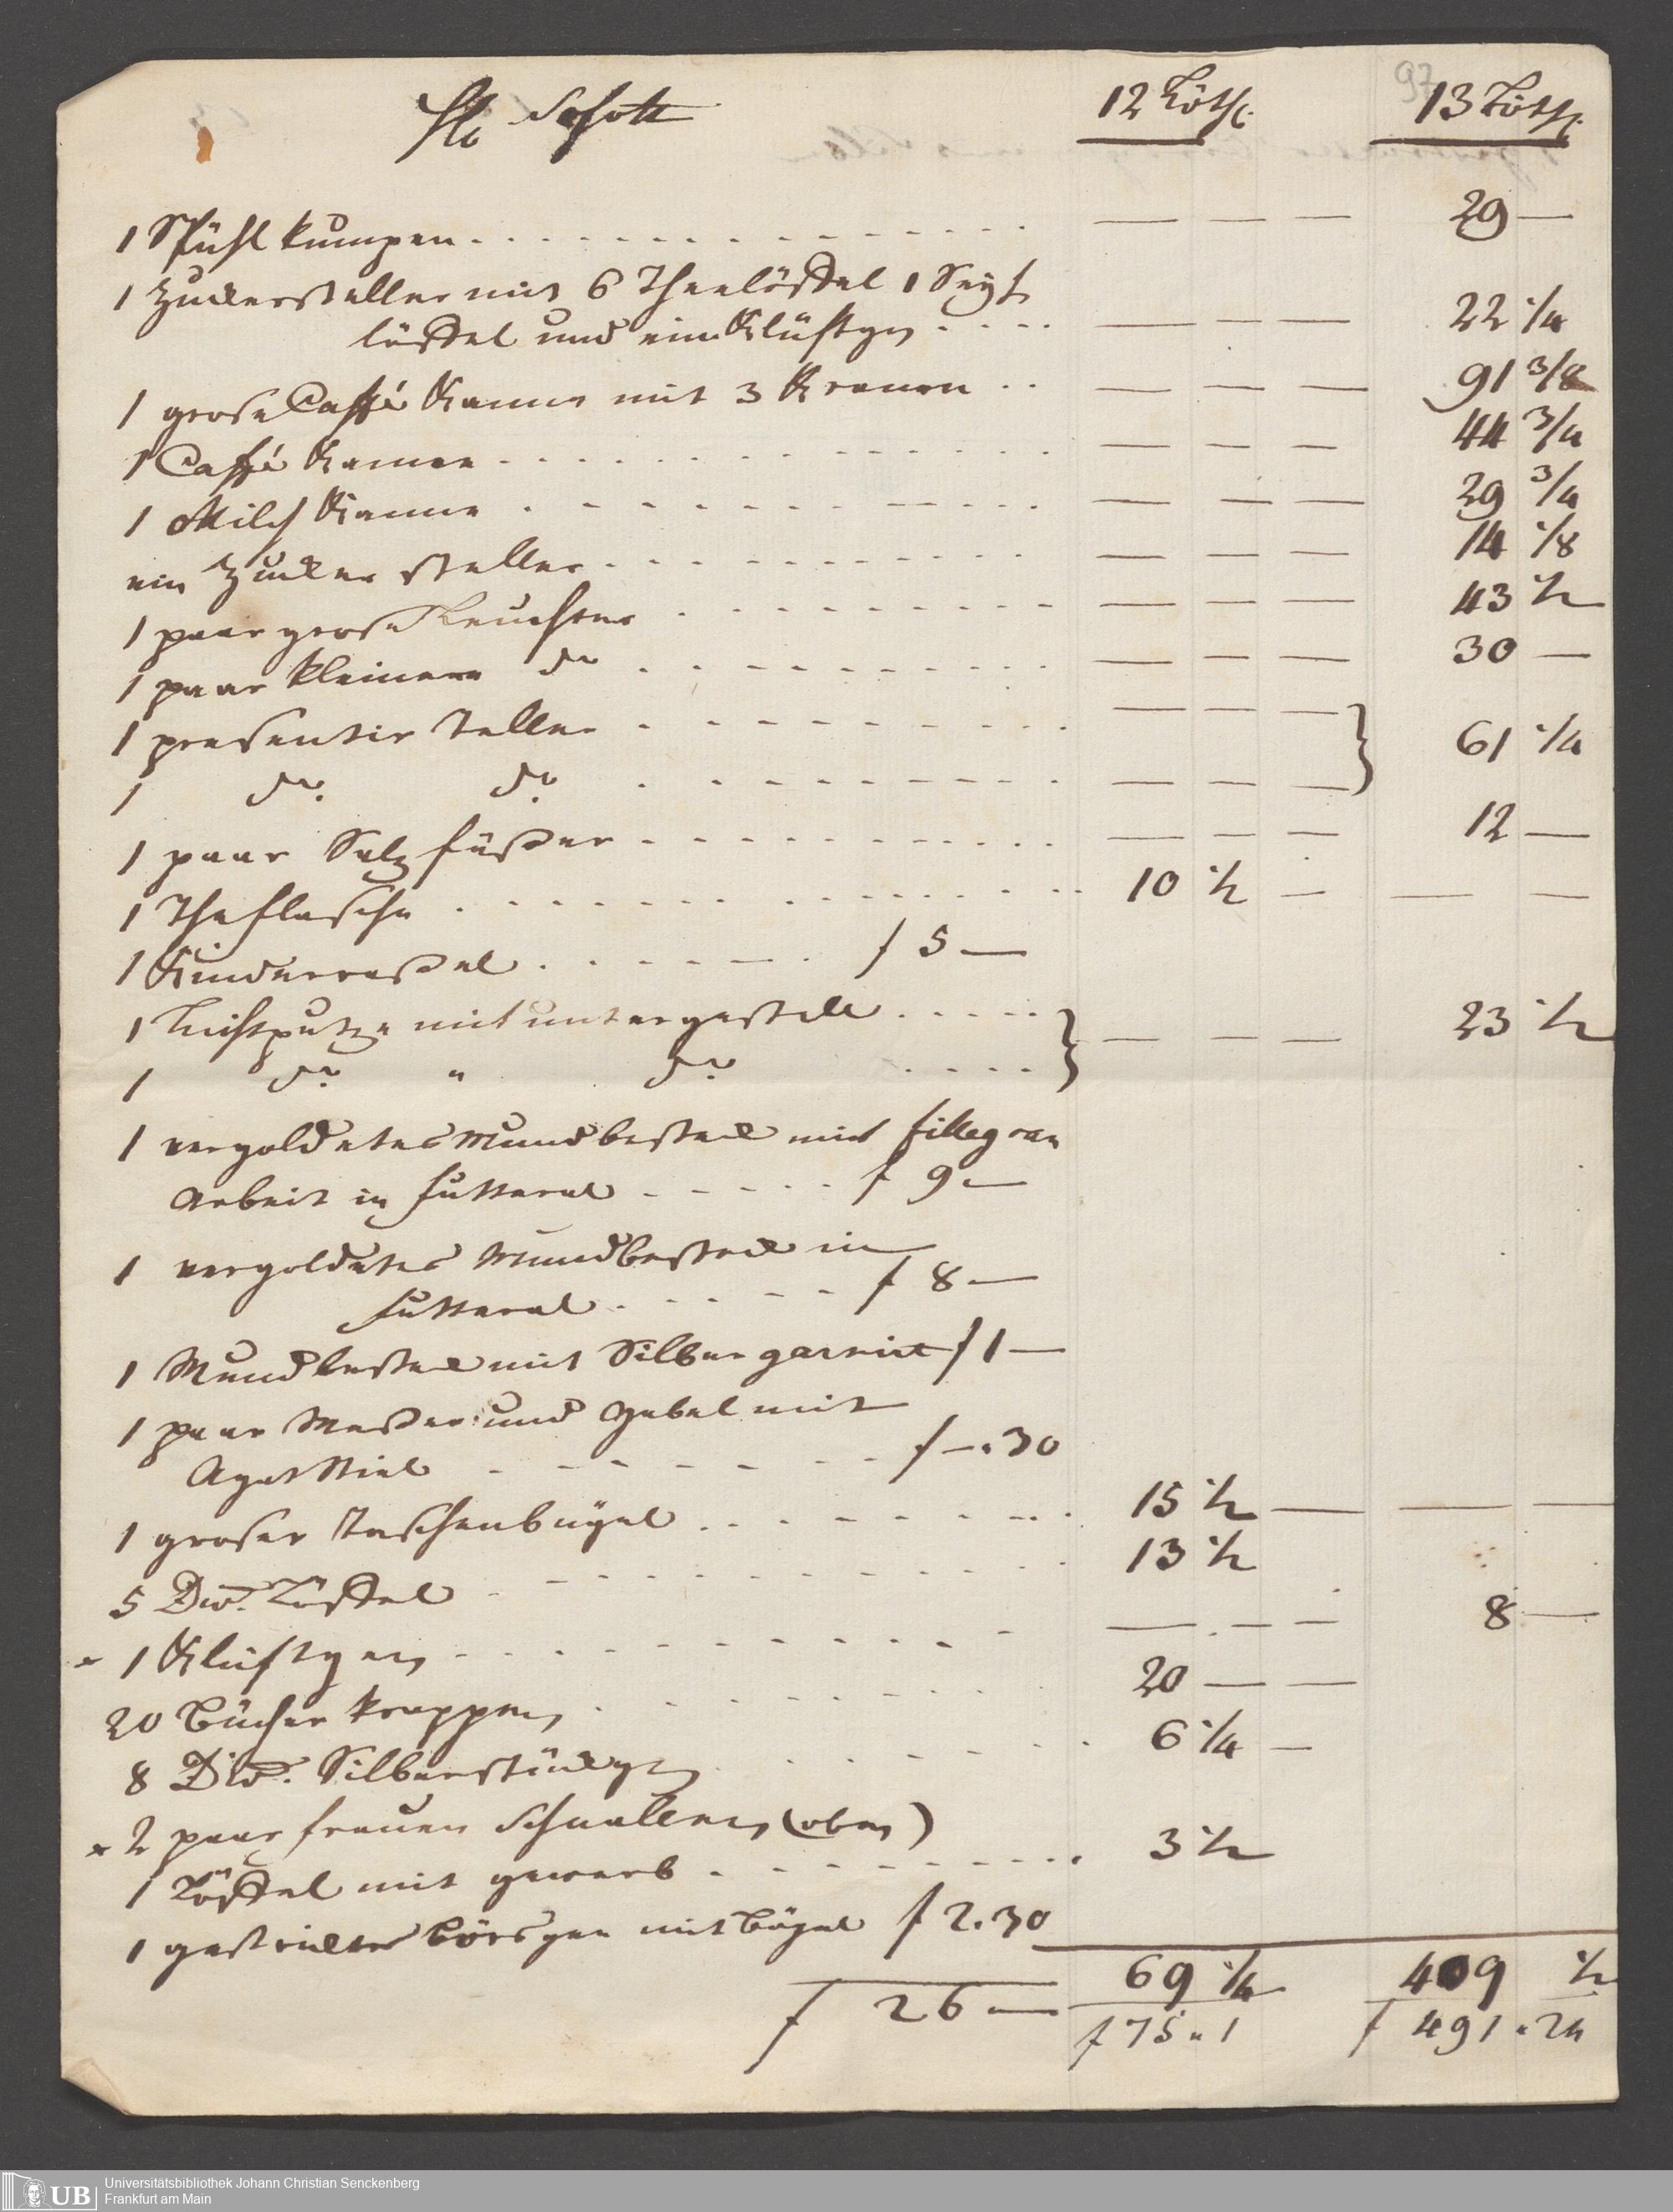 97
Schott 12 Löth. 13 Löth.
1 Spühl kumpen 29 —
1 Zuckersteller mit 6 Theelöffel 1 Seyh
löffel und ein Klüftgen 22 1/4
1 grose Caffé Kanne mit 3 Kranen 91 3/8
1 Caffé Kanne 44 3/4
1 Milch Kanne 29 3/4
ein Zucker steller 14 1/8
1 paar grose Leuchter 43 1/2
1 paar kleinere do 30 —
1 presentir Teller
1 do. do. 61 1/4
1 paar Salz fäßer 12 —
1 The flasche 10 1/2
1 Kinderraßel f 5 —
1 Lichtputze mit untergestell
1 do. " do. 23 1/2
1 vergoldetes Mundbesteck mit fillegran
Arbeit in futteral f 9 —
1 vergoldetes Mundbesteck in
futteral f 8 —
1 Mundbesteck mit Silber garnirt f 1 —
1 paar Meßer und Gabel mit
Agat Stiel f —. 30
1 groser Taschenbügel 15 1/2
5 Div. Löffel 13 1/2
* 1 Klüftgen 8 —
20 Bücher krappen 20 —
8 Div. Silberstückgen 6 1/4
* 2 paar frauen Schnallen
1 Löffel mit gewerb 3 1/2
1 gestricktes Börsgen mit Bögel f 2. 30
69 1/4 409 1/2
f 26 — f 75 " 1 f 491 " 24
UB Universitätsbibliothek Johann Christian Senckenberg
Frankfurt am Main